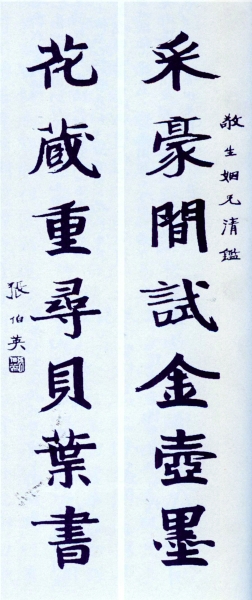 敬生姻兄清鑑
采豪間試金壺墨
花蔵重尋貝葉書
張伯英